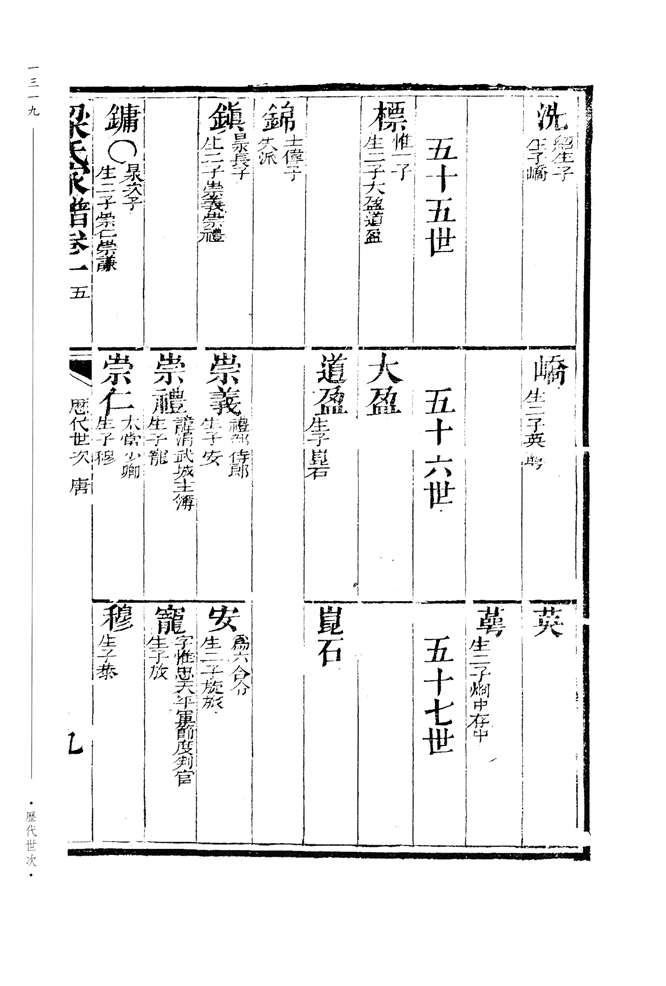 洗
紹生子
生子嶠
五十五世
標
惟一子
生二子大盈道盈
錦
士偉子
失派
鎮
杲長子
生二子崇義崇禮
鏞
杲次子
生二子崇仁崇謙
嶠
生二子英
五十六世
大盈
道盈
生子崑石
崇義
禮部侍郎
生子安
崇禮
武城主簿
生子寵
崇仁
太常少卿
生子穆
英
生二子烱中存中
五十七世
崑石
安
爲六合令
生二子旋旅
寵
字惟忠天平軍節度判官
生子旋
穆
生子恭
梁氏家譜卷一
五
歷代世次 唐
九
一三一九
·歷代世次·